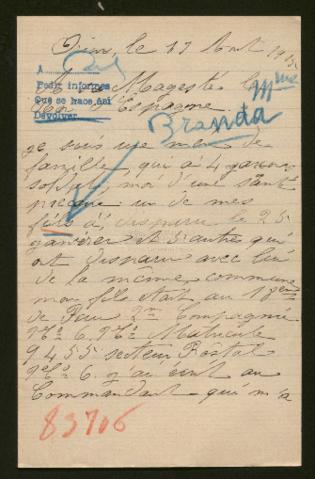 le 17 Aout 1915
A
Pedir informes
Que se hace, así
Devolver
Sa Magesté le
Roi d'Espagne
Mme
Branda
Je suis une mère de
famille, qui a 4 garcons
soldat, moi d'une santé
precaire un de mes
fils a, disparu le 25
janvier et 5 autre qui
ont disparu avec lui
de la même commune
mon fils était au 18eme
de Pau 2me Compagnie
No 6, No Matricule
9455 secteur Postal
No 6. j'ai écrit au
Commandant qui m'a
83706